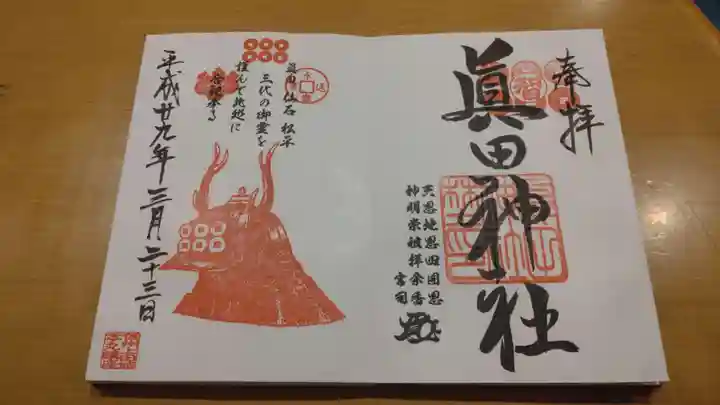 奉拝
眞田神社
天恩地恩四囲恩
神明崇敬拝余香
宮司
眞田 仙石 松平
三代の御霊を
謹んで此処に
平成廿九年三月二十三日